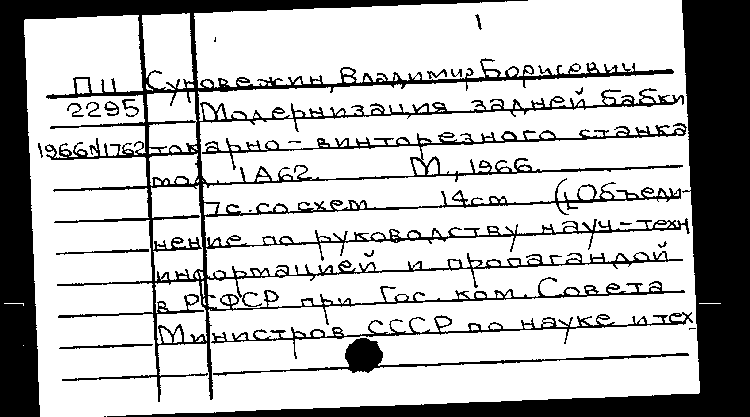 1
ПЦ Суровежин, Владимир Борисович
2295 Модернизация задней бабки
1966N1762 токарно-винторезного станка
мод. 1А62. М., 1966.
7с. со схем 14см (Объеди-
нение по руководству науч-техн
информацией и пропагандой
в РСФСР при Гос. ком. Совета
Министров СССР по науке и тех